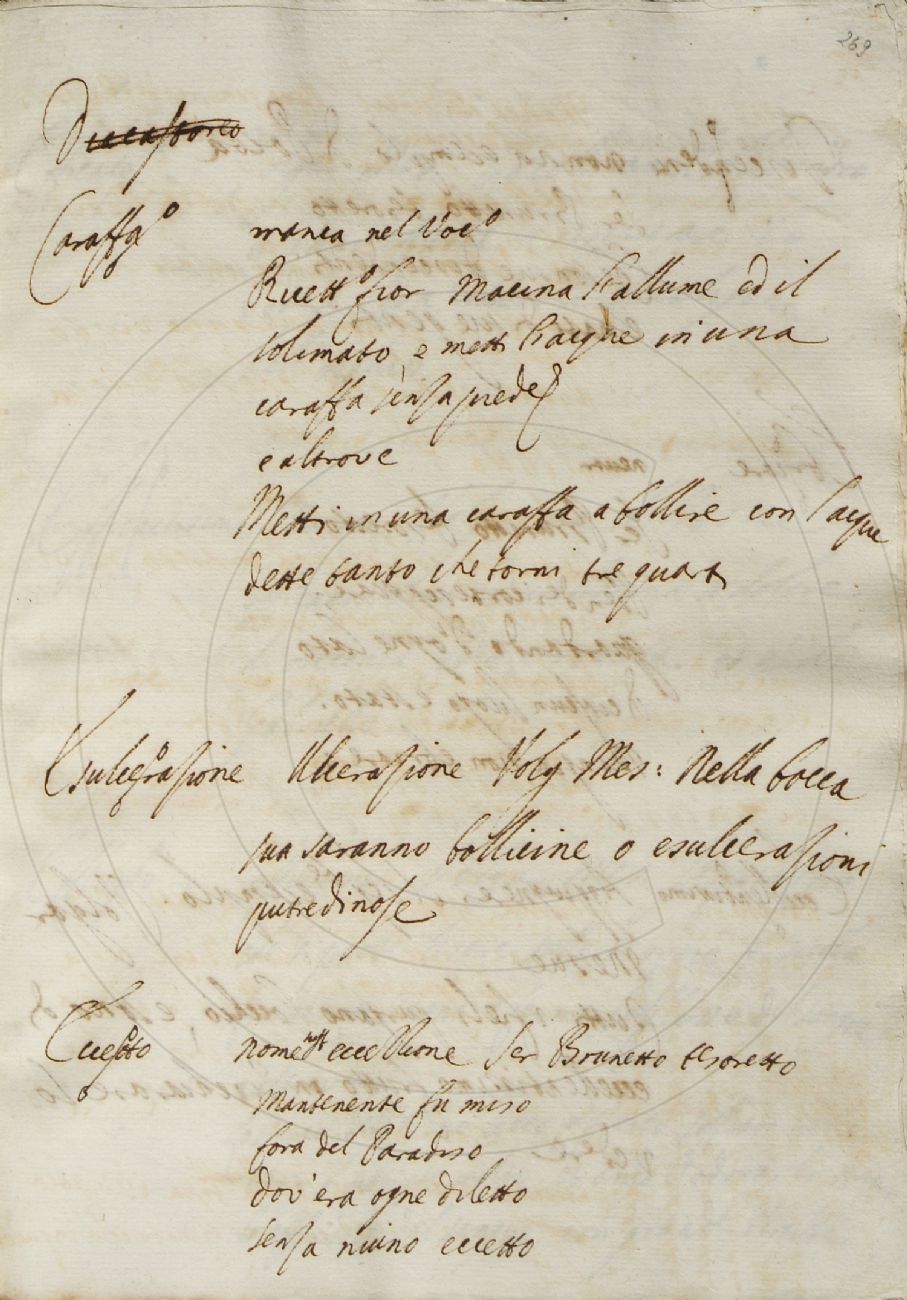 269
Caraffa manca nel Voc.o
Ricett.o fior Macina l'allume ed il
solimato, e metti l'acque in una
caraffa senza piede
e altrove
Metti in una caraffa a bollire con l'acque
dette tanto che torni tre quarti
Esulcerazione Ulcerazione Volg Mes: Nella bocca
sua saranno bollicine o esulcerazioni
putredinose
Eccetto nome eccezzione Ser Brunetto tesoretto
Mantenente fu miso
fora del Paradiso
dov'era ogne diletto
senza niuno eccetto